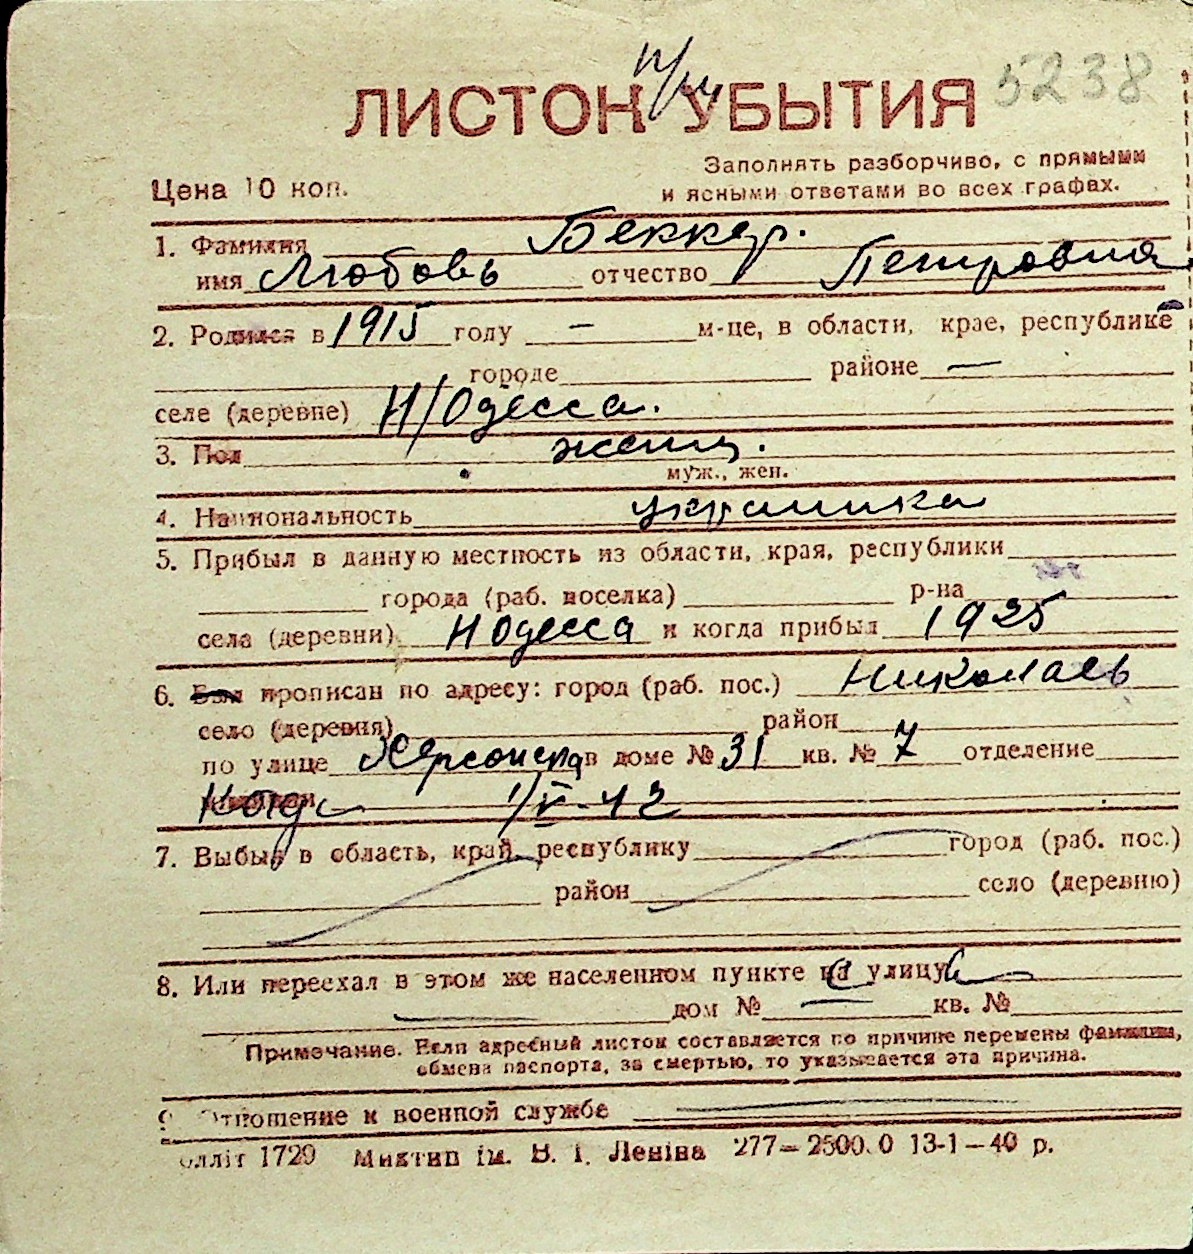 5238
ЛИСТОК УБЫТИЯ
Заполнять разборчиво, с прямыми
Цена 10 коп. и ясными ответами во всех графах.
1. Фамилия Беккер.
имя Любовь отчество Петровна
2. Родился в 1915 году – м-це, в области, крае, республике
городе районе —
селе (деревне) Н/Одесса.
3. Пол женщ.
муж., жен.
4. Национальность украинка
5. Прибыл в данную местность из области, края, республики
города (раб. поселка) р-на
села (деревни) Н Одесса и когда прибыл 1925
6. Был прописан по адресу: город (раб. пос.) Николаев
село (деревня) район
по улице Херсонская в доме № 31 кв. № 7 отделение
милиции 1/V-42
7. Выбыл в область, край, республику город (раб. пос.)
район село (деревню)
8. Или переехал в этом же населенном пункте на улицу
дом № — кв. №
Примечание. Если адресный листок составляется по причине перемены фамилии,
обмена паспорта, за смертью, то указывается эта причина.
9. Отношение к военной службе
олліт 1729 Миктип ім. В. І. Леніна 277–2500.0 13-1–40 р.